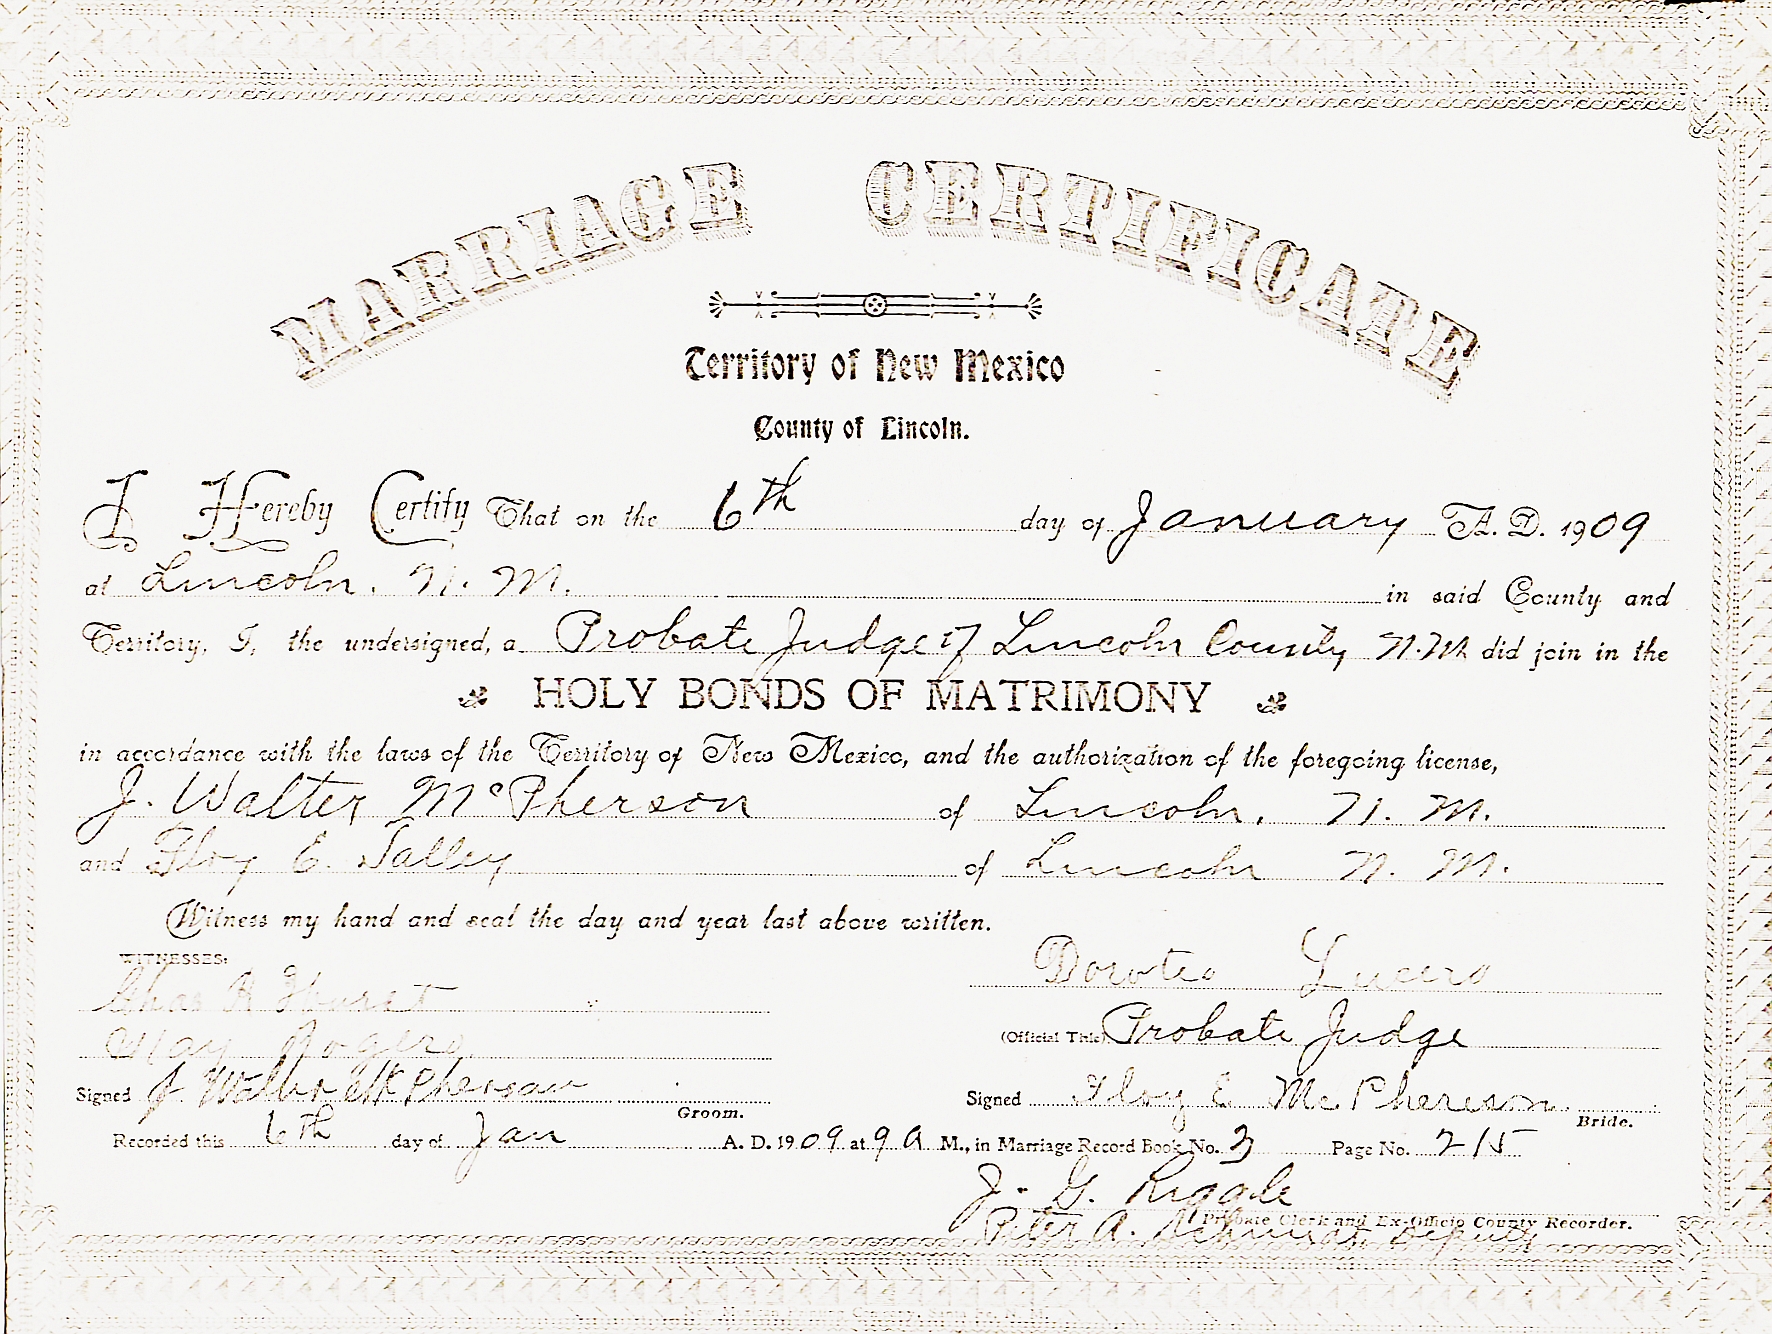 MARRIAGE CERTIFICATE
Territory of New Mexico
County of Lincoln.
I Hereby Certify That on the 6th day of January A. D. 1909
at Lincoln. N. M. in said County and
Territory, I, the undersigned, a Probate Judge of Lincoln County N. M. did join in the
HOLY BONDS OF MATRIMONY
in accordance with the laws of the Territory of New Mexico, and the authorization of the foregoing license,
J. Walter McPherson of Lincoln, N. M.
and Floy E. Talley of Lincoln N. M.
Witness my hand and seal the day and year last above written.
WITNESSES:
Doroteo Lucero
Chas R Hurst
(Official Title) Probate Judge
May Rogers
Signed J Walter McPherson Groom.
Signed Floy E McPherson Bride.
Recorded this 6th day of Jan A. D. 1909 at 9 A M., in Marriage Record Book No. 3 Page No. 215
J. G. Riggle
Probate Clerk and Ex-Officio County Recorder.
Peter A. Deputy